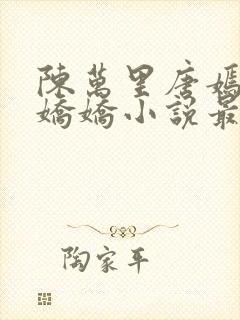 陳萬里唐嫣
嬌嬌小說最
陶家平